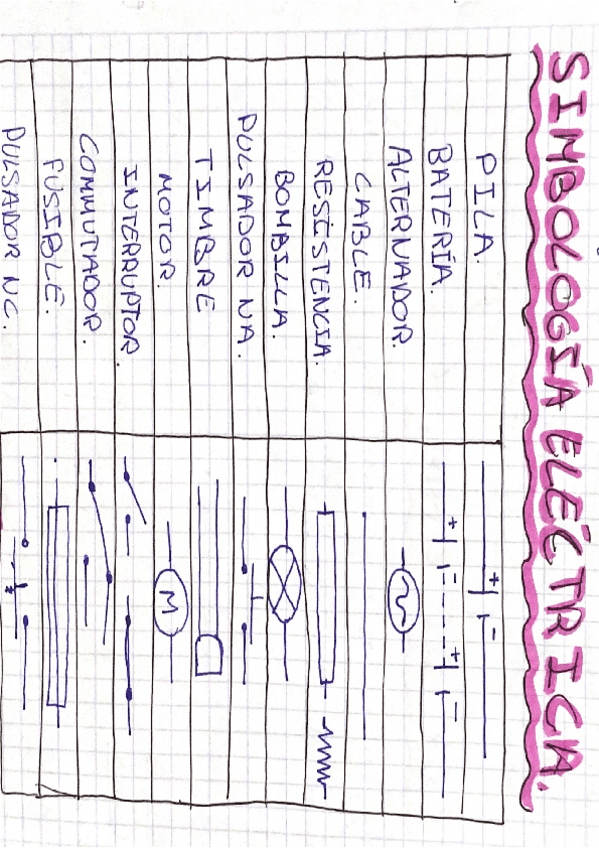 SIMBOLOGÍA ELÉCTRICA.
PILA.
+ -
BATERÍA.
+ - + -
ALTERNADOR.
CABLE.
RESISTENCIA.
BOMBILLA.
PULSADOR NA.
TIMBRE
MOTOR.
M
INTERRUPTOR.
COMMUTADOR.
FUSIBLE.
PULSADOR NC.